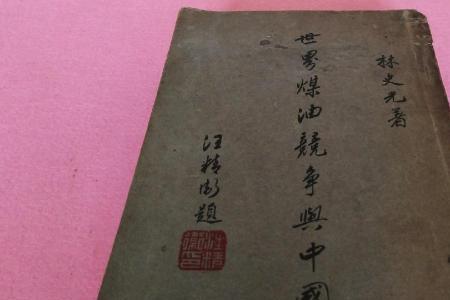 林史光著
世界煤油競爭與中國
汪精衛題
汪精衛印